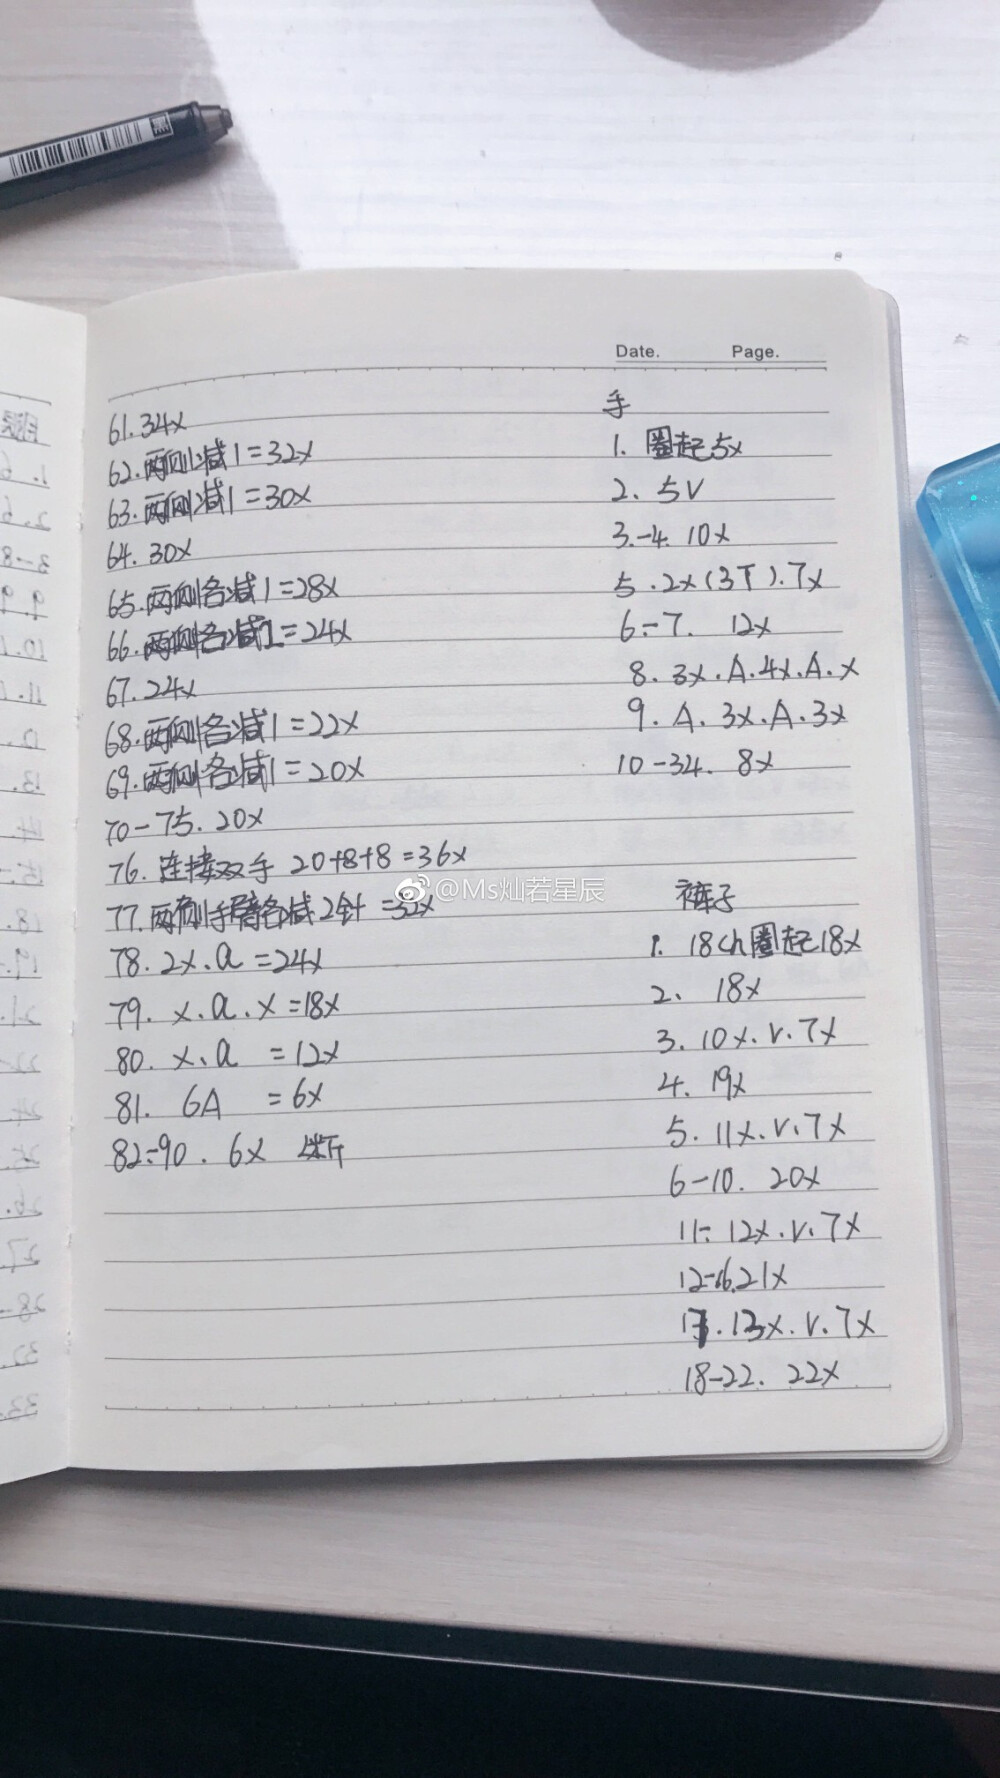 Date. Page.
61.34x
62.两侧减1=32x
63.两侧减1=30x
64.30x
65.两侧各减1=28x
66.两侧各减2=24x
67.24x
68.两侧各减1=22x
69.两侧各减1=20x
70-75.20x
76.连接双手 20+8+8=36x
77.两侧手臂各减2针=32x
78.2x.a=24x
79.x.a.x=18x
80.x.a =12x
81. 6A =6x
82-90. 6x 断
手
1. 圈起5x
2. 5V
3.-4. 10x
5.2x(3T).7x
6-7. 12x
8.3x.A.4x.A.x
9.A.3x.A.3x
10-34. 8x
裤子
1. 18ch圈起18x
2. 18x
3. 10x.v.7x
4. 19x
5. 11x.v.7x
6-10. 20x
11. 12x.v.7x
12-16.21x
17.13x.v.7x
18-22. 22x
@Ms灿若星辰